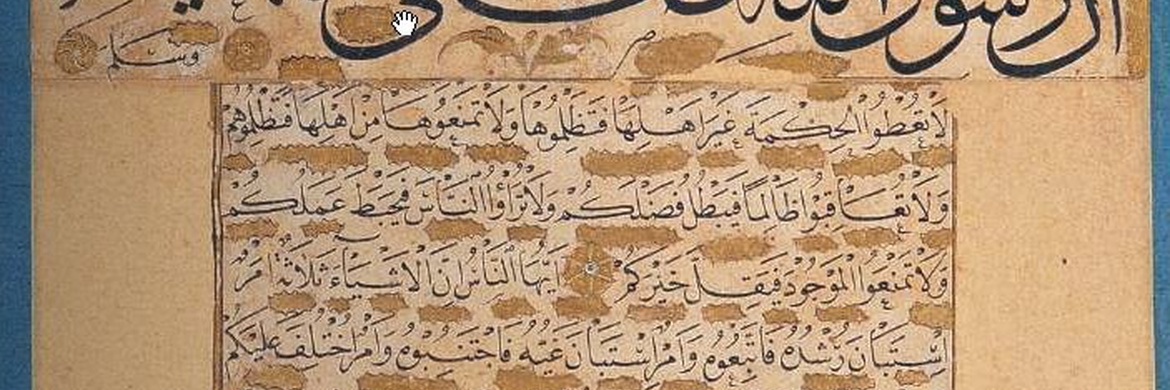 ان رسول الله
وسلم
لَا تُعْطُوا الْحِكْمَةَ غَيْرَ اَهْلِهَا فَتَظْلِمُوهَا وَلَا تَمْنَعُوهَا مِنْ اَهْلِهَا فَتَظْلِمُوهُمْ
وَلَا تُعَاقِبُوا ظَالِمًا فَيَبْطُلَ فَضْلُكُمْ وَلَا تُرَاؤُا النَّاسَ فَيَحْبَطَ عَمَلُكُمْ
وَلَا تَمْنَعُوا الْمَوْجُودَ فَيَقِلَّ خَيْرُكُمْ اَيُّهَا النَّاسُ اِنَّ الْاَشْيَاءَ ثَلَاثَةٌ اَمْرٌ
اسْتَبَانَ رُشْدُهُ فَاتَّبِعُوهُ وَاَمْرٌ اسْتَبَانَ غَيُّهُ فَاجْتَنِبُوهُ وَاَمْرٌ اخْتَلَفَ عَلَيْكُمْ